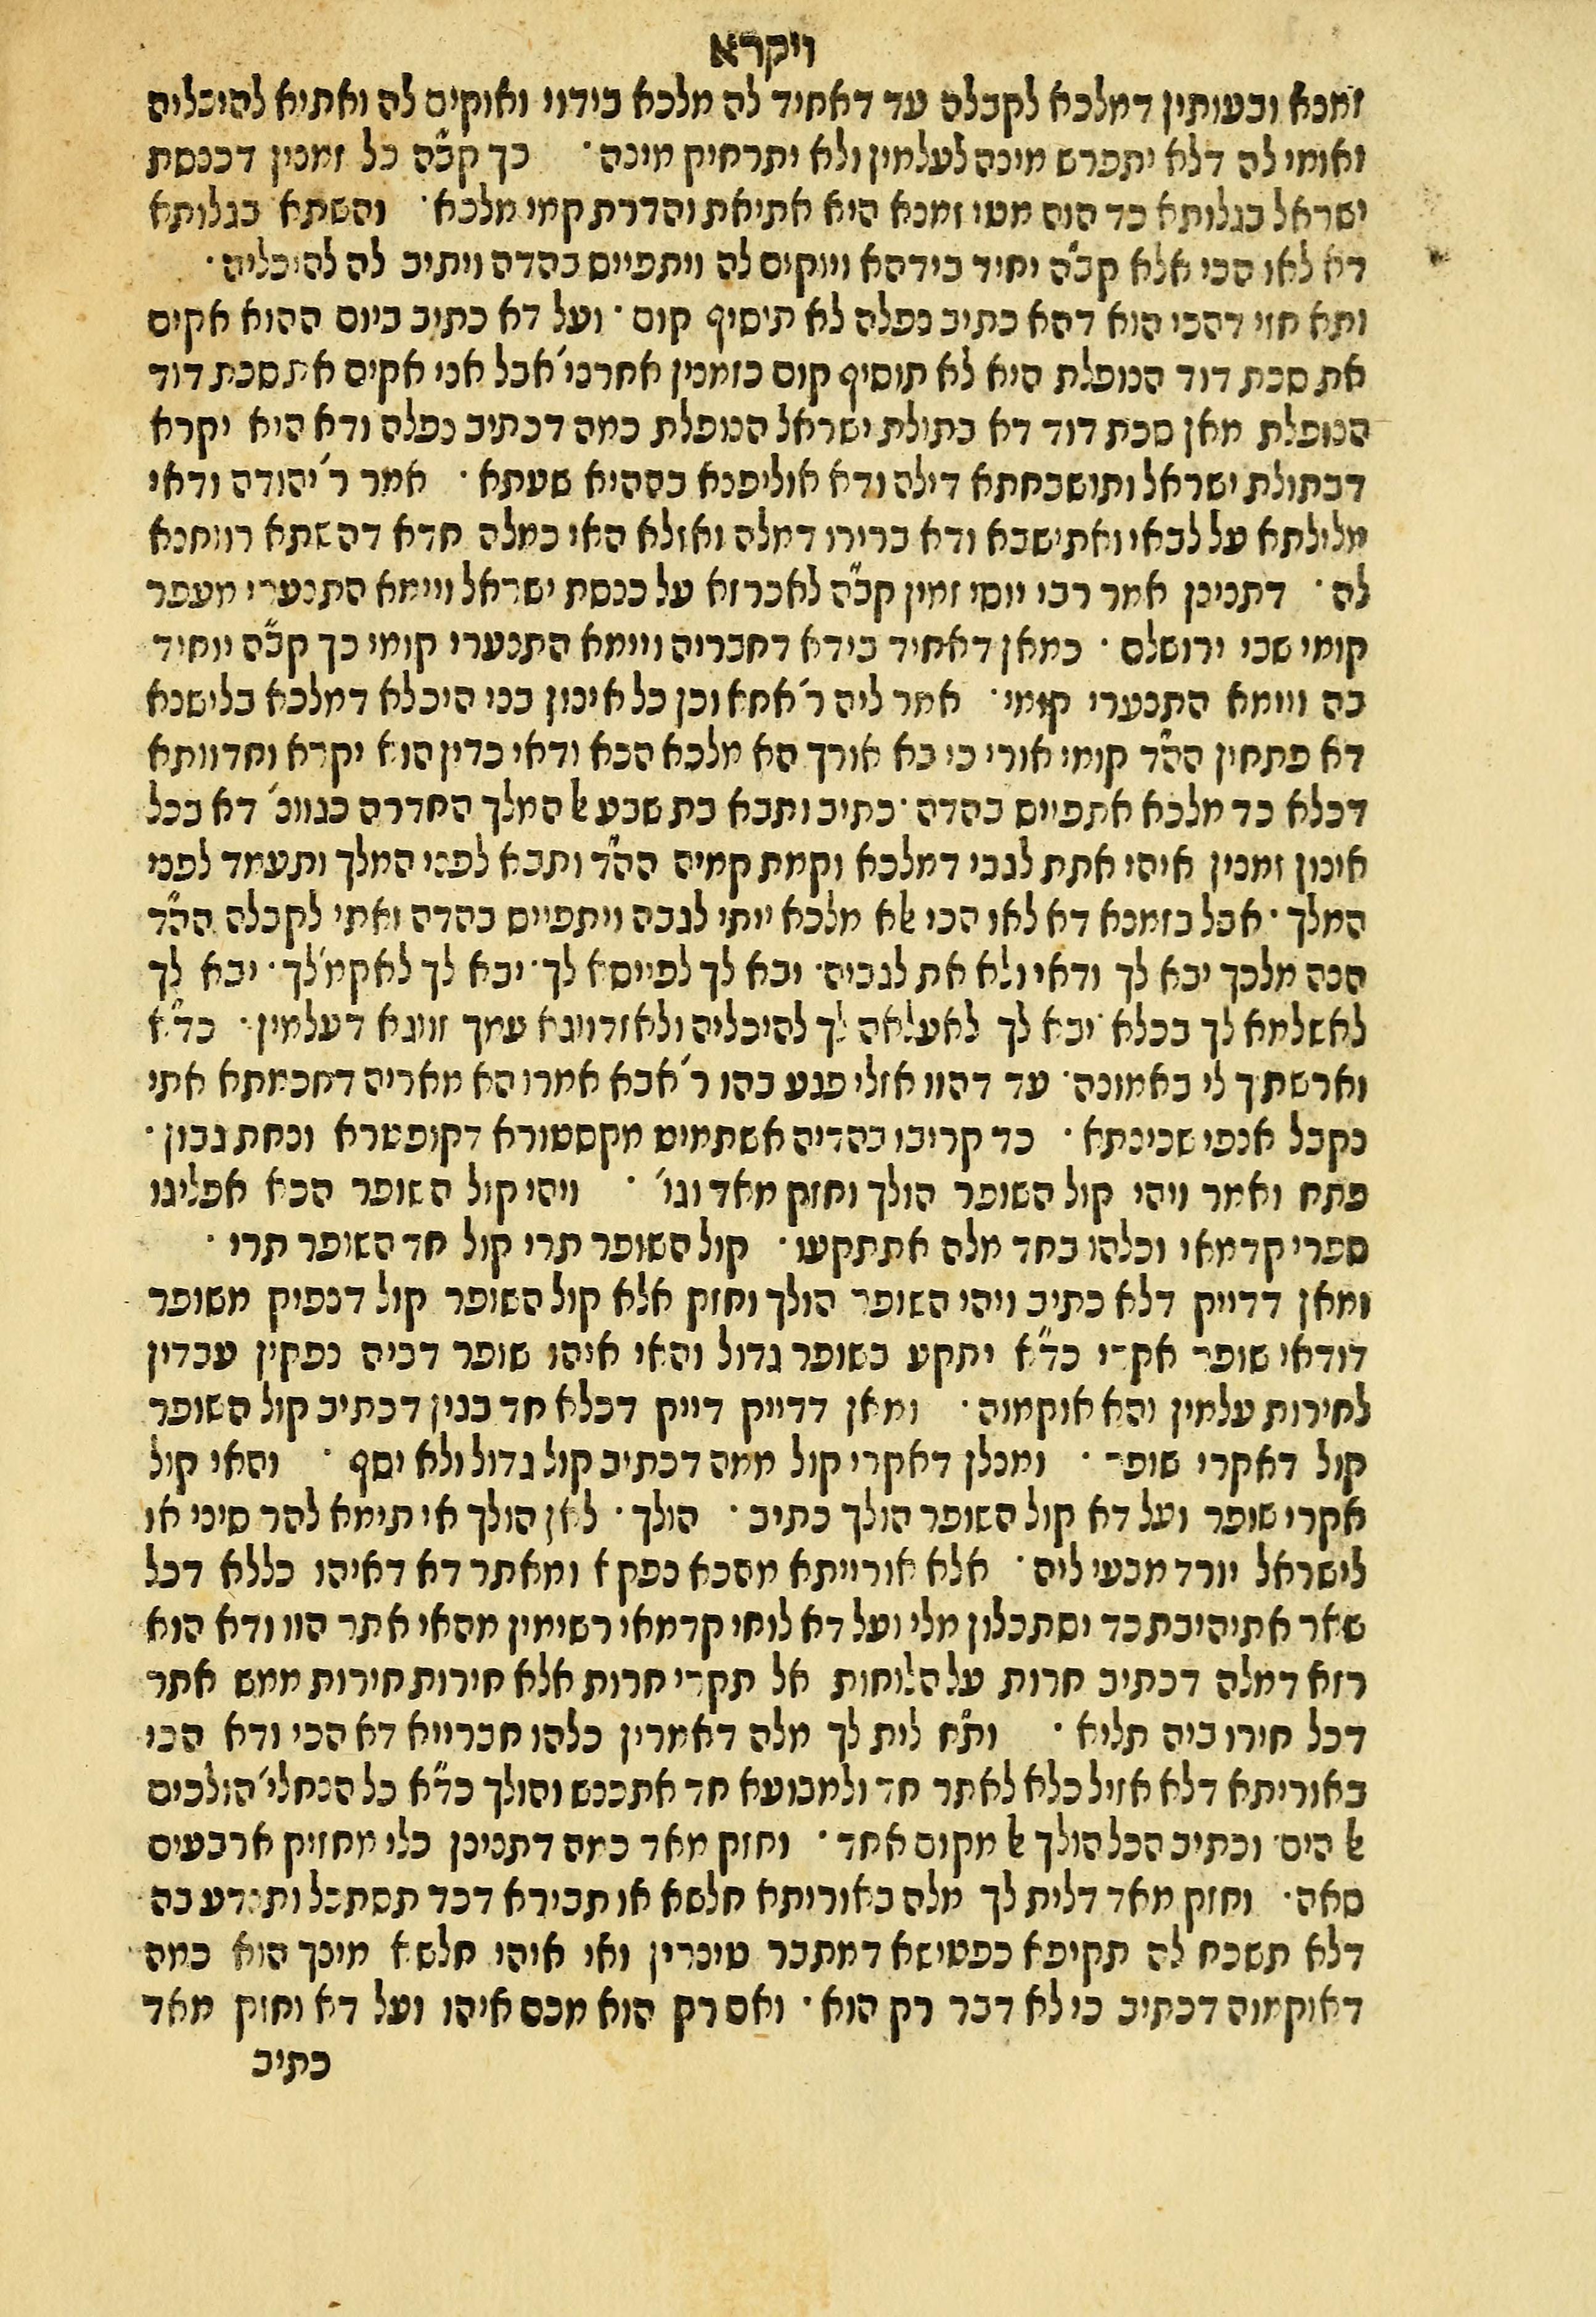 ויקרא
זמנא ובעותין דמלכא לקבלה עד דאחיד לה מלכא בידוי ואוקים לה ואתיא להיכליה
ואומי לה דלא יתפרש מינה לעלמין ולא יתרחיק מינה · כך קב״ה כל זמנין דכנסת
ישראל בגלותא כד הוה מטי זמנא היא אתיאת והדרת קמי מלכא · והשתא בגלותא
דא לאו הכי אלא קב״ה יחיד בידהא ויוקים לה ויתפייס בהדה ויתיב לה להיכליה ·
ותא חזי דהכי הוא דהא כתיב נפלה לא תוסיף קום · ועל דא כתיב ביום ההוא אקים
את סכת דוד הנופלת היא לא תוסיף קום כזמנין אחרני׳ אבל אני אקים את סכת דוד
הנופלת מאן סכת דוד דא בתולת ישראל הנופלת כמה דכתיב נפלה ודא היא יקרא
דבתולת ישראל ותושבחתא דילה ודא אוליפנא בההיא שעתא · אמר ר׳ יהודה ודאי
מלילתא על לבאי ואתישבא ודא ברירו דמלה ואזלא האי כמלה חדא דהשתא רווחנא
לה · דתנינן אמר רבי יוסי זמין קב״ה לאכרזא על כנסת ישראל ויימא התנערי מעפר
קומי שבי ירושלם · כמאן דאחיד בידא דחבריה ויימא התנערי קומי כך קב״ה יוחיד
בה ויימא התנערי קומי · אמר ליה ר׳ אחא וכן כל אינון בני היכלא דמלכא בלישנא
דא פתחין הה״ד קומי אורי כי בא אורך הא מלכא הכא ודאי כדין הוא יקרא וחדוותא
דכלא כד מלכא אתפייס בהדה · כתיב ותבא בת שבע אל המלך החדרה כגוונ׳ דא בכל
אינון זמנין איהי אתת לגבי דמלכא וקמת קמיה הה״ד ותבא לפני המלך ותעמד לפני
המלך · אבל בזמנא דא לאו הכי אלא מלכא ייתי לגבה ויתפייס בהדה ואתי לקבלה הה״ד
הנה מלכך יבא לך ודאי ולא את לגביה · יבא לך לפייסא לך · יבא לך לאקמ׳ לך · יבא לך
לאשלמא לך בכלא · יבא לך לאעלאה לך להיכליה ולאזדווגא עמך זווגא דעלמין · כד״א
וארשתיך לי באמונה · עד דהוו אזלי פגע בהו ר׳ אבא אמרו הא מאריה דחכמתא אתי
נקבל אנפי שכינתא · כד קריבו בהדיה אשתמיט מקסטורא דקופטרא ונחת גבון ·
פתח ואמר ויהי קול השופר הולך וחזק מאד וגו׳ · ויהי קול השופר הכא אפליגו
ספרי קדמאי וכלהו בחד מלה אתתקעו · קול השופר תרי קול חד השופר תרי ·
ומאן דדייק דלא כתיב ויהי השופר הולך וחזק אלא קול השופר קול דנפיק משופר
דודאי שופר אקרי כד״א יתקע בשופר גדול והאי איהו שופר דביה נפקין עבדין
לחירות עלמין והא אוקמוה · ומאן דדייק דייק דכלא חד בגין דכתיב קול השופר
קול דאקרי שופר · ומנלן דאקרי קול ממה דכתיב קול גדול ולא יסף · והאי קול
אקרי שופר ועל דא קול השופר הולך כתיב · הולך · לאן הולך אי תימא להר סיני או
לישראל יורד מבעי ליה · אלא אורייתא מהכא נפקא ומאתר דא דאיהו כללא דכל
שאר אתיהיבת כד יסתכלון מלי ועל דא לוחי קדמאי רשימין מהאי אתר הוו ודא הוא
רזא דמלה דכתיב חרות על הלוחות אל תקרי חרות אלא חירות חירות ממש אתר
דכל חירו ביה תליא · ות״ח לית לך מלה דאמרין כלהו חברייא דא הכי ודא הכי
באוריתא דלא אזיל כלא לאתר חד ולמבועא חד אתכנש והולך כד״א כל הנחלי׳ הולכים
אל הים · וכתיב הכל הולך אל מקום אחד · וחזק מאד כמה דתנינן כלי מחזיק ארבעים
סאה · וחזק מאד דלית לך מלה באוריתא חלשא או תבירא דכד תסתכל ותנדע בה
דלא תשכח לה תקיפא כפטישא דמתבר טינרין ואי איהו חלשא מינך הוא כמה
דאוקמוה דכתיב כי לא דבר רק הוא · ואם רק הוא מכם איהו ועל דא וחזק מאד
כתיב